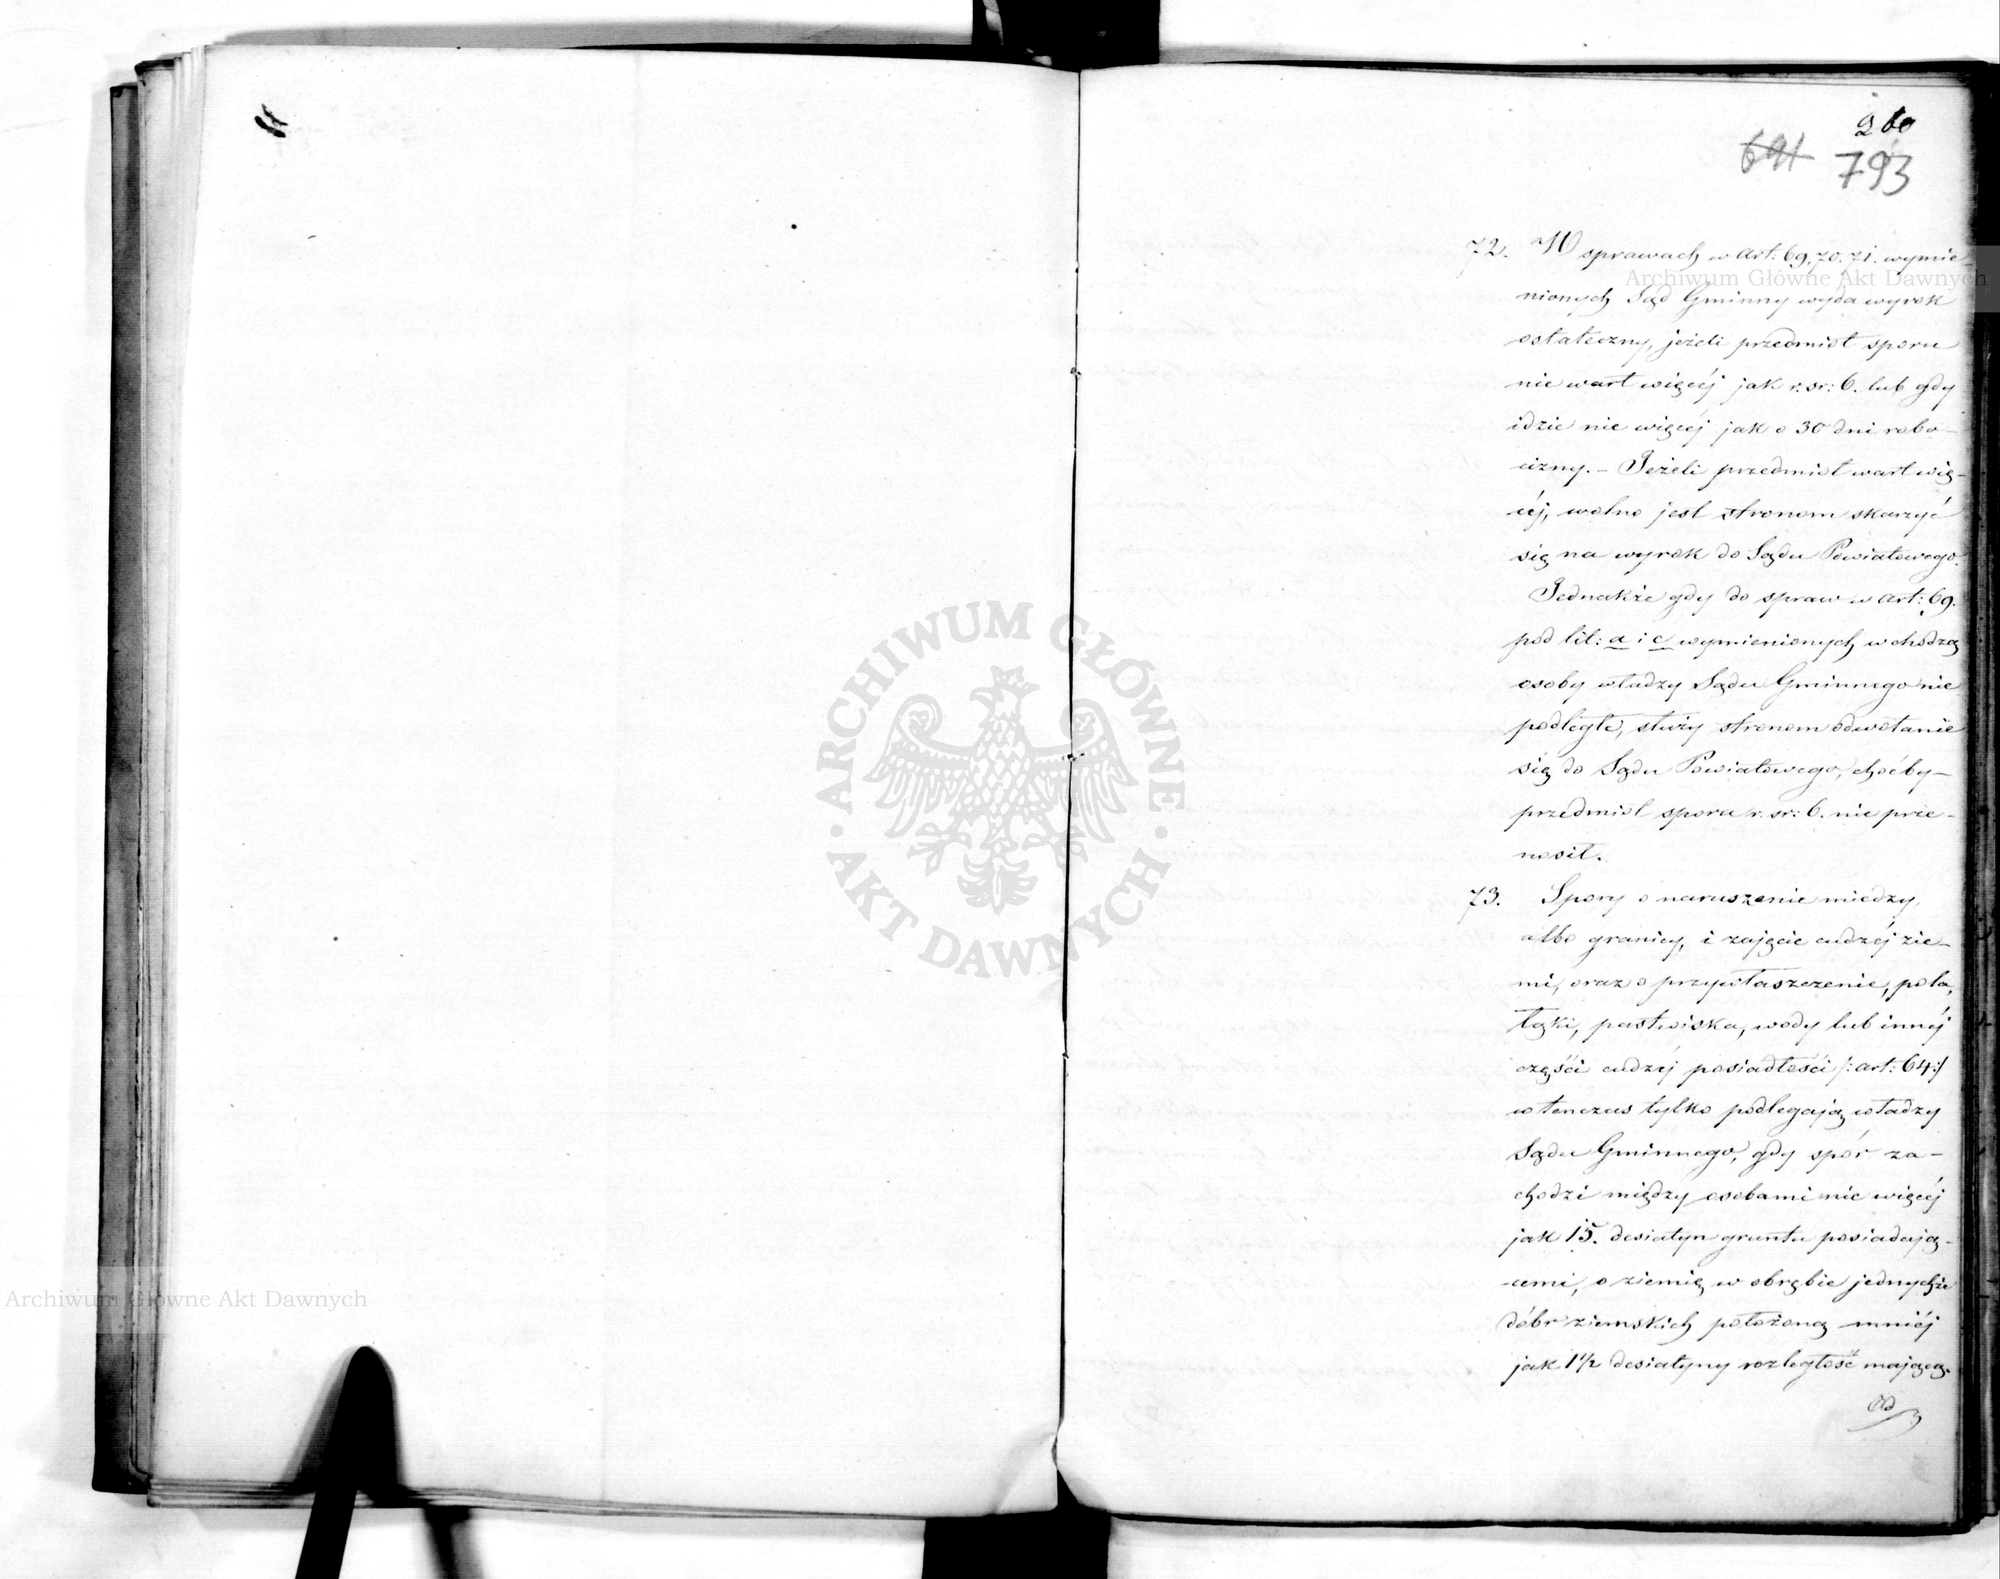 260
691 793
72. W sprawach w art: 69, 70. 71. wymie-
nionych Sąd Gminny wyda wyrok
ostateczny, jeżeli przedmiot sporu
nie wart więcéj jak r. sr: 6. lub gdy
idzie nie więcéj jak o 30 dni robo-
cizny. – Jeżeli przedmiot wart wię-
céj, wolno jest stronom skarzyć
się na wyrok do Sądu Powiatowego.
Jednakże gdy do spraw w art: 69.
pod lit: a i c wymienionych wchodzą
osoby władzy Sądu Gminnego nie
podległe, służy stronom odwołanie
się do Sądu Powiatowego, choćby-
przedmiot sporu r. sr: 6. nie prze-
nosił.
73. Spory o naruszenie miedzy,
albo granicy, i zajęcie cudzéj zie-
mi, oraz o przywłaszczenie, pola,
łąki, pastwiska, wody lub innéj
części cudzéj posiadłości /: art: 64:/
wtenczas tylko podlegają władzy
Sądu Gminnego, gdy spór za-
chodzi między osobami nie więcéj
jak 15. desiatyn gruntu posiadają-
cemi, o ziemię w obrębie jednychże
dóbr ziemskich położoną mniéj
jak 1½ desiatyny rozległość mającą.
Od
Archiwum Główne Akt Dawnych
ARCHIWUM GŁÓWNE
AKT DAWNYCH
Archiwum Główne Akt Dawnych